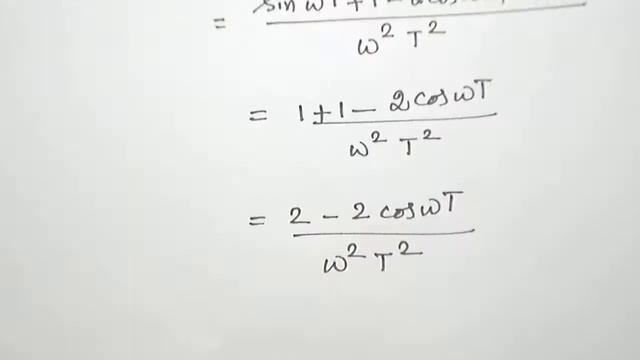 = sin ωT + 1 -
ω² T²
= 1 + 1 - 2 cos ωT
ω² T²
= 2 - 2 cos ωT
ω² T²